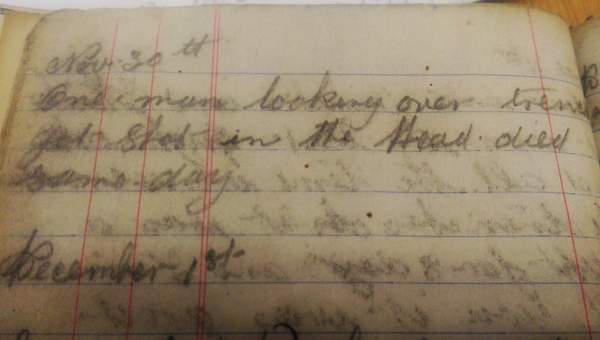 Nov. 30th
One man looking over tren
got shot in the Head. died
same day
December 1st